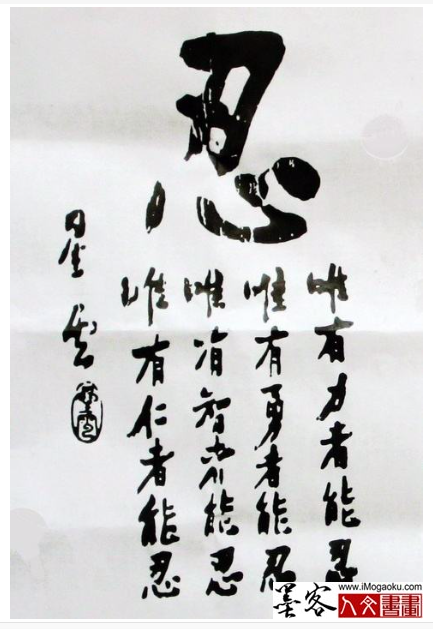 忍
唯有力者能忍
唯有勇者能忍
唯有智者能忍
唯有仁者能忍
星雲
墨客
www.iMogaoku.com
人文書畫